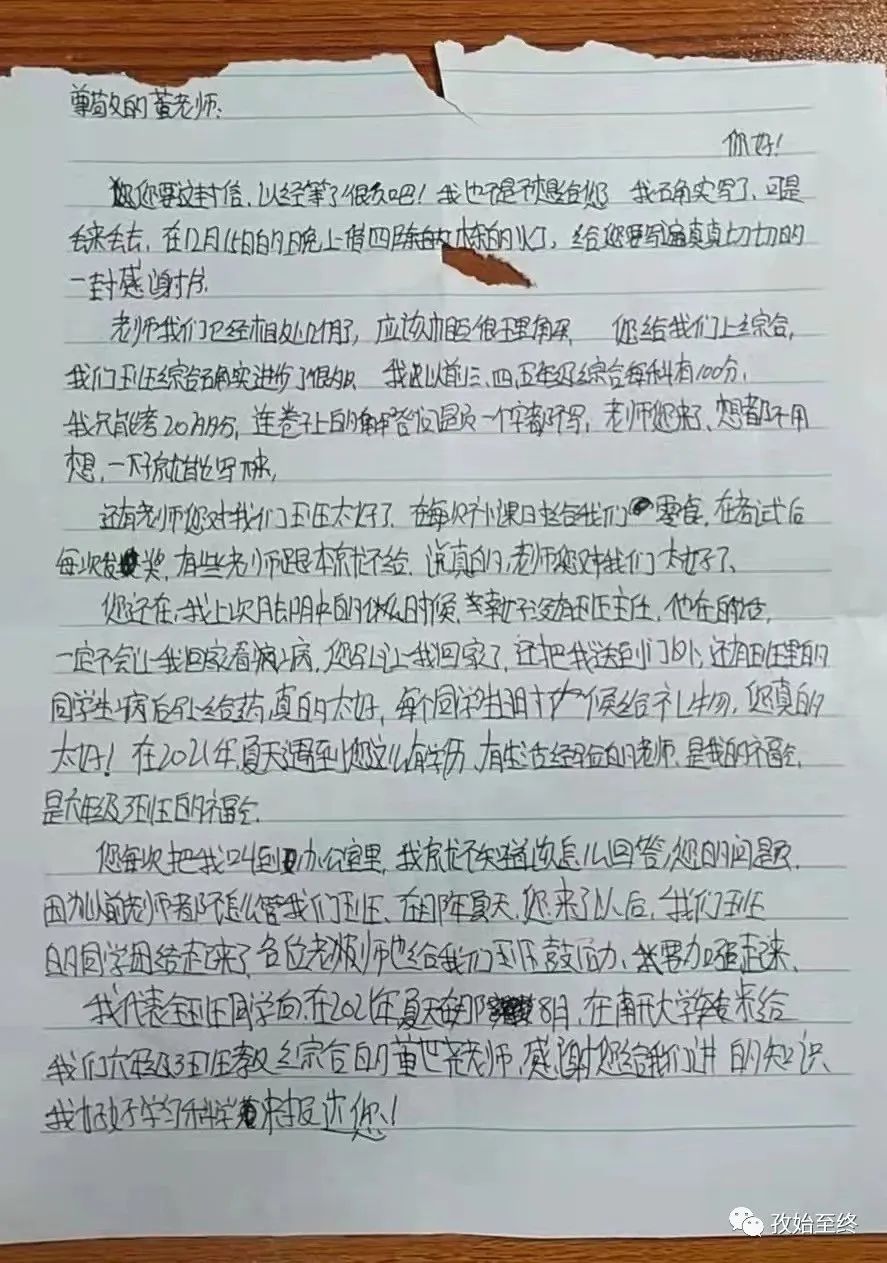 尊敬的董老师:
你好!
您要这封信,以经等了很久吧!我也不是不想给您 我确实写了、可是
丢来丢去,在12月15日的晚上借四陈的水陈的火丁,给您要写真真切切的
一封感谢信。
老师我们已经相处几个月了,应该相互很理解。 您给我们上综合,
我们班综合确实进步了很多 我以前三、四、五年级综合每科有100分,
我只能考20分,连卷子上的解答问题一个字都不写,老师您来了、想都不用
想,一下子就写下来,
还有老师您对我们班太好了。在每次补课日给我们零食,在考试后
每次发奖,有些老师跟本就不给。说真的,老师您对我们太好了、
您还在,我上次月期中的什么时候,幸好没有班主任,他在的话,
一定不会让我回家看病,您让我回家了,还把我送到门口,还有班里的
同学生病后给药,真的太好,每个同学生日时候给礼物,您真的
太好!在2021年夏天遇到您这么有学历、有生活经验的老师,是我的福气,
是六年级3班的福气.
您每次把我叫到办公室里,我就不知道该怎么回答您的问题,
因为以前老师都不怎么管我们班、在那年夏天,您来了以后,我们班
的同学团结起来了,各位老师也给我们班鼓励、我要加强起来、
我代表全班同学向,在2021年夏天在那8日,在南开大学来给
我们六年级3班教综合的董老师,感谢您给我们讲的知识、
我好好学习科学来报达您!
孜始至终